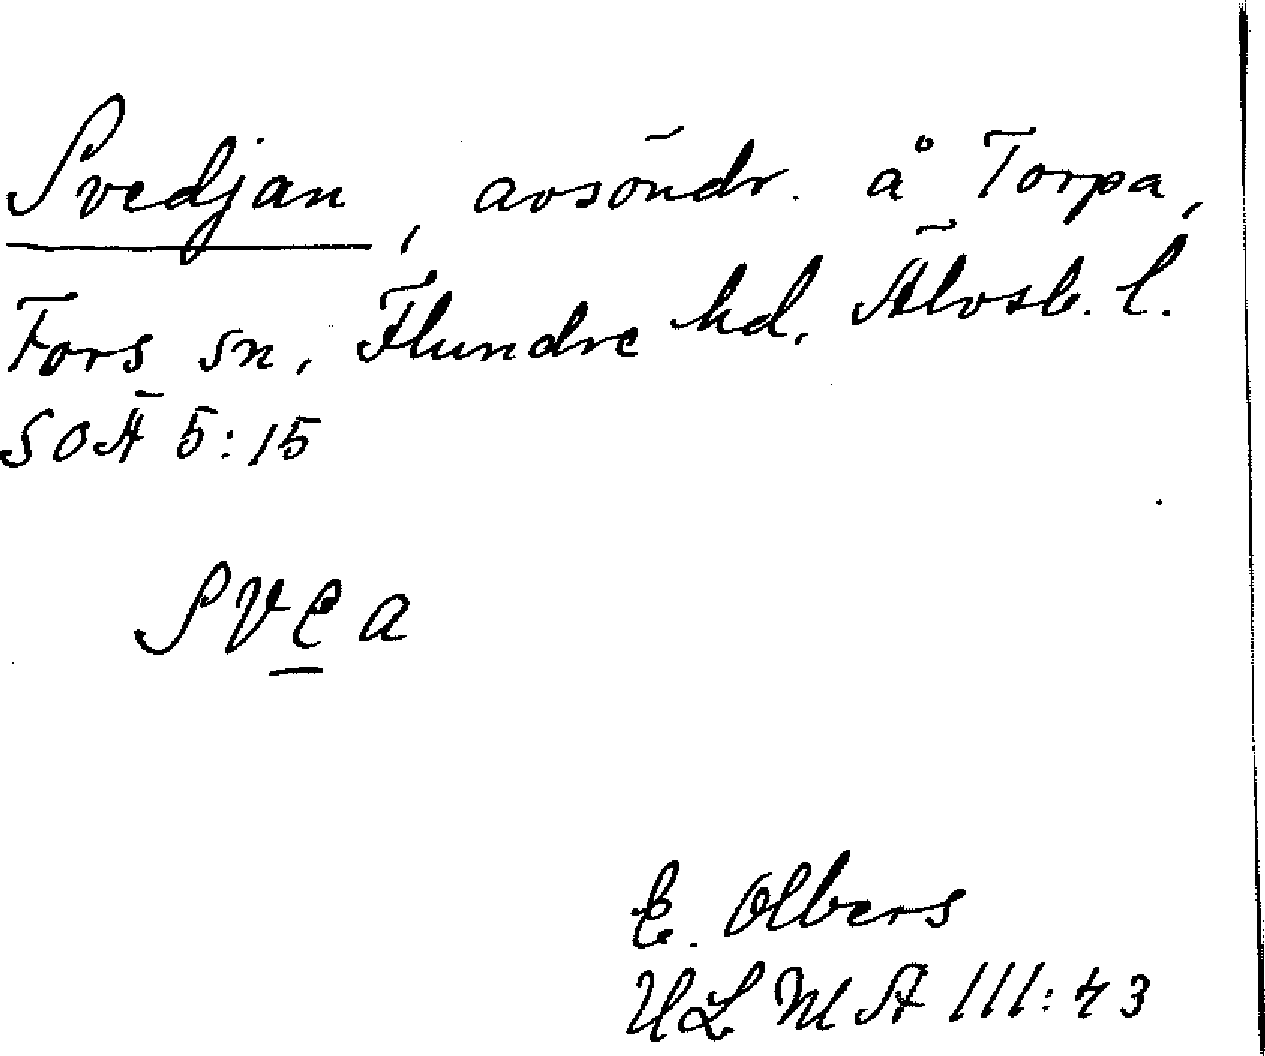 Svedjan, avsöndr. å Torpa,
Fors sn, Flundre hd, Älvsb. l.
SOÄ 5:15
svea
E. Olbers
ULMA 111:43